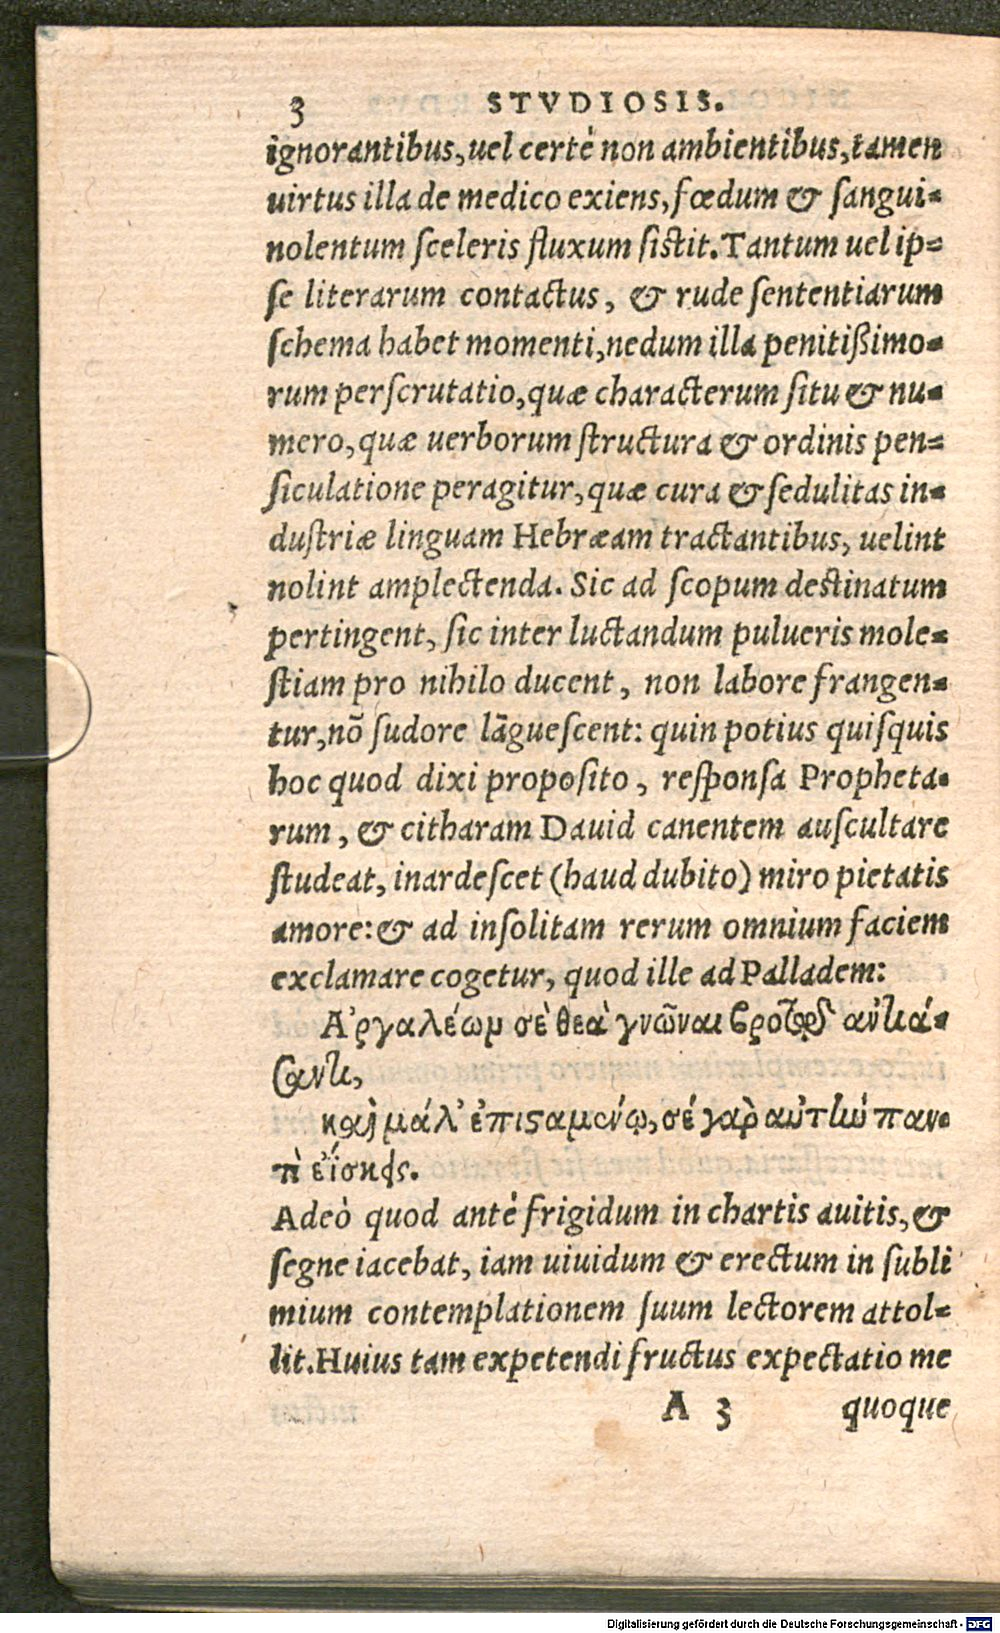 3 STVDIOSIS.
ignorantibus, uel certè non ambientibus, tamen
uirtus illa de medico exiens, fœdum & sangui-
nolentum sceleris fluxum sistit. Tantum uel ip-
se literarum contactus, & rude sententiarum
schema habet momenti, nedum illa penitißimo-
rum perscrutatio, quæ characterum situ & nu-
mero, quæ uerborum structura & ordinis pen-
siculatione peragitur, quæ cura & sedulitas in-
dustriæ linguam Hebræam tractantibus, uelint
nolint amplectenda. Sic ad scopum destinatum
pertingent, sic inter luctandum pulueris mole-
stiam pro nihilo ducent, non labore frangen-
tur, nõ sudore lãguescent: quin potius quisquis
hoc quod dixi proposito, responsa Propheta-
rum, & citharam Dauid canentem auscultare
studeat, inardescet (haud dubito) miro pietatis
amore: & ad insolitam rerum omnium faciem
exclamare cogetur, quod ille ad Palladem:
Αργαλέομ σὲ θεὰ γνῶναι βροτῷ ἀντιά-
σαντι,
καὶ μάλ' ἐπισαμένῳ, σέ γὰρ αὐτὴν παν-
τὶ ἐΐσκεις.
Adeò quod antè frigidum in chartis auitis, &
segne iacebat, iam uiuidum & erectum in subli
mium contemplationem suum lectorem attol-
lit. Huius tam expetendi fructus expectatio me
A 3 quoque
Digitalisierung gefördert durch die Deutsche Forschungsgemeinschaft - DFG